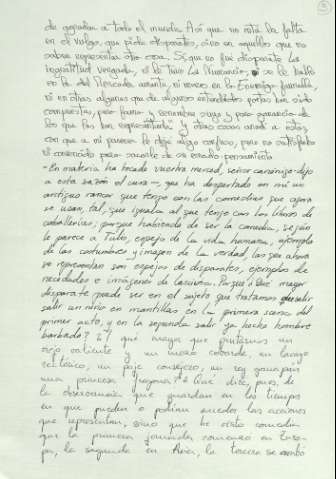 de agradar a todo el mundo. Así que no está la falta
en el vulgo, que pide disparates, sino en aquellos que no
saben representar otra cosa. Sí, que no fue disparate La
ingratitud vengada, ni le tuvo La Numancia, ni se le halló
en la del Mercader amante, ni menos en la Enemiga favorable,
ni en otras algunas que de algunos entendidos poetas han sido
compuestas, para fama y renombre suyo y para ganancia de
los que las han representado." y otras cosas añadí a éstas
con que a mi parecer le dejé algo confuso, pero no satisfecho
ni convencido para sacarle de su errado pensamiento
- En materia ha tocado vuestra merced, señor canónigo -dijo
a esta sazón el cura-, que ha despertado en mí un
antiguo rancor que tengo con las comedias que agora
se usan, tal, que iguala al que tengo con los libros de
caballerías; porque habiendo de ser la comedia, según
le parece a Tulio, espejo de la vida humana, ejemplo
de las costumbres y imagen de la verdad, las que ahora
se representan son espejos de disparates, ejemplos de
necedades e imágenes de lascivia. Porque ¿Qué mayor
disparate puede ser en el sujeto que tratamos que salir
un niño en mantillas en la primera scena del
primer acto, y en la segunda salir ya hecho hombre
barbado? ¿Y qué mayor que pintarnos un
viejo valiente y un mozo cobarde, un lacayo
retórico, un paje consejero, un rey ganapán
una princesa fregona? ¿Qué diré, pues, de
la observancia que guardan en los tiempos
en que pueden o podían suceder las acciones
que representan, sino que he visto comedia
que la primera jornada comenzó en Euro-
pa, la segunda en Asia, la tercera se acabó